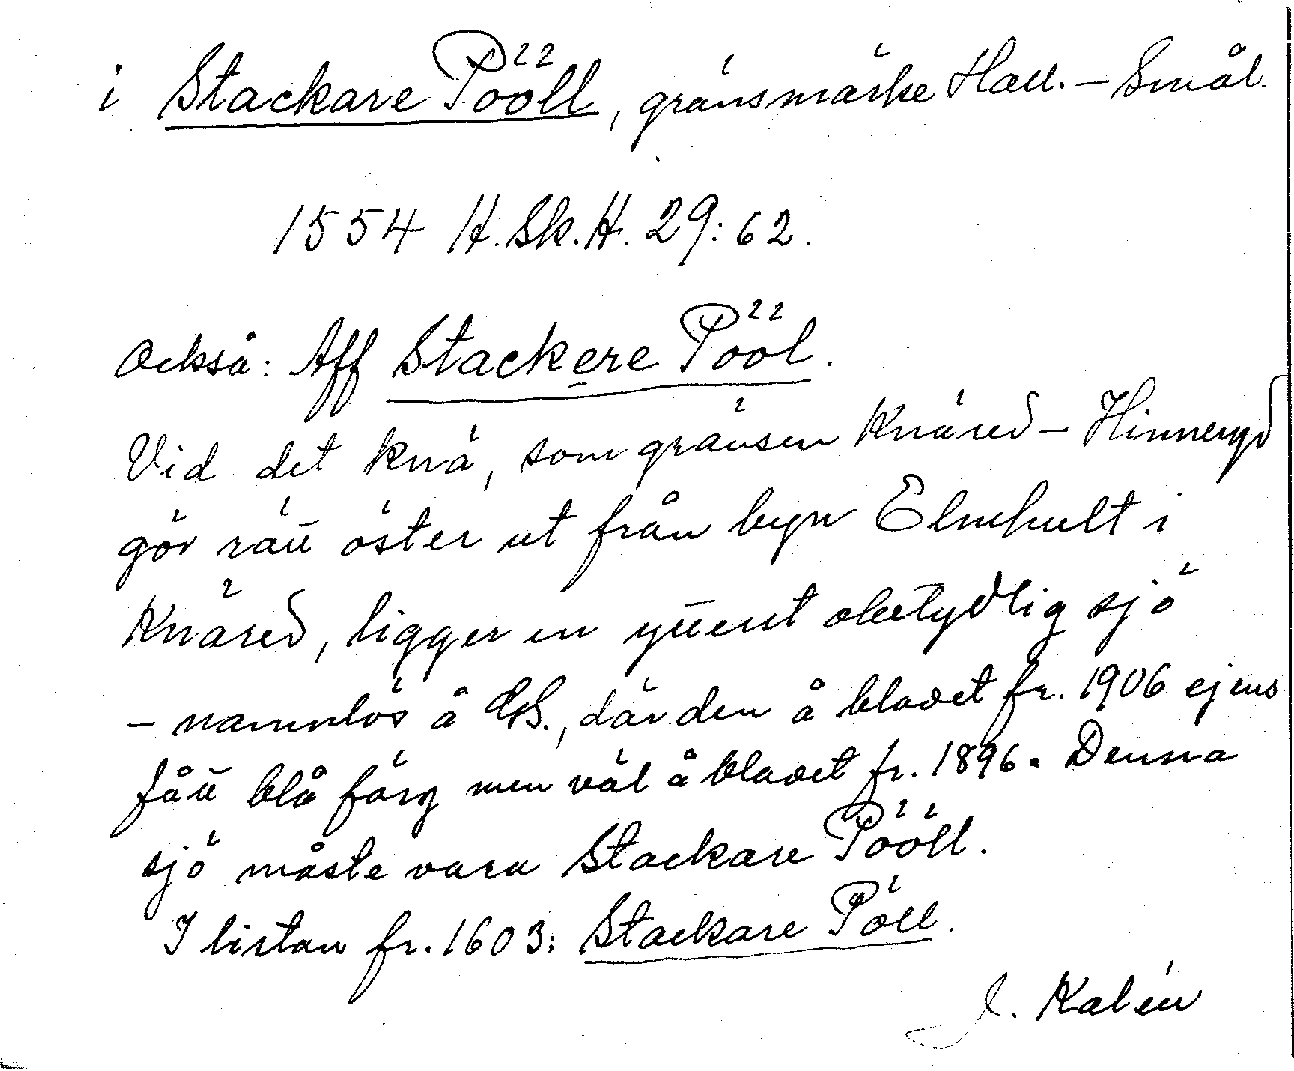 i Stackare Pööll, gränsmärke Hall. – Smål.
1554 H. Sk. H. 29: 62.
Också: Aff Stackere Pööl.
Vid det knä, som gränsen Knäred – Hinneryd
gör rätt öster ut från byn Elmhult i
Knäred, ligger en ytterst obetydlig sjö
– namnlös å GS., där den å bladet fr. 1906 ej ens
fått blå färg men väl å bladet fr. 1896. Denna
sjö måste vara Stackare Pööll.
I listan fr. 1603: Stackare Pöll.
J. Kalén